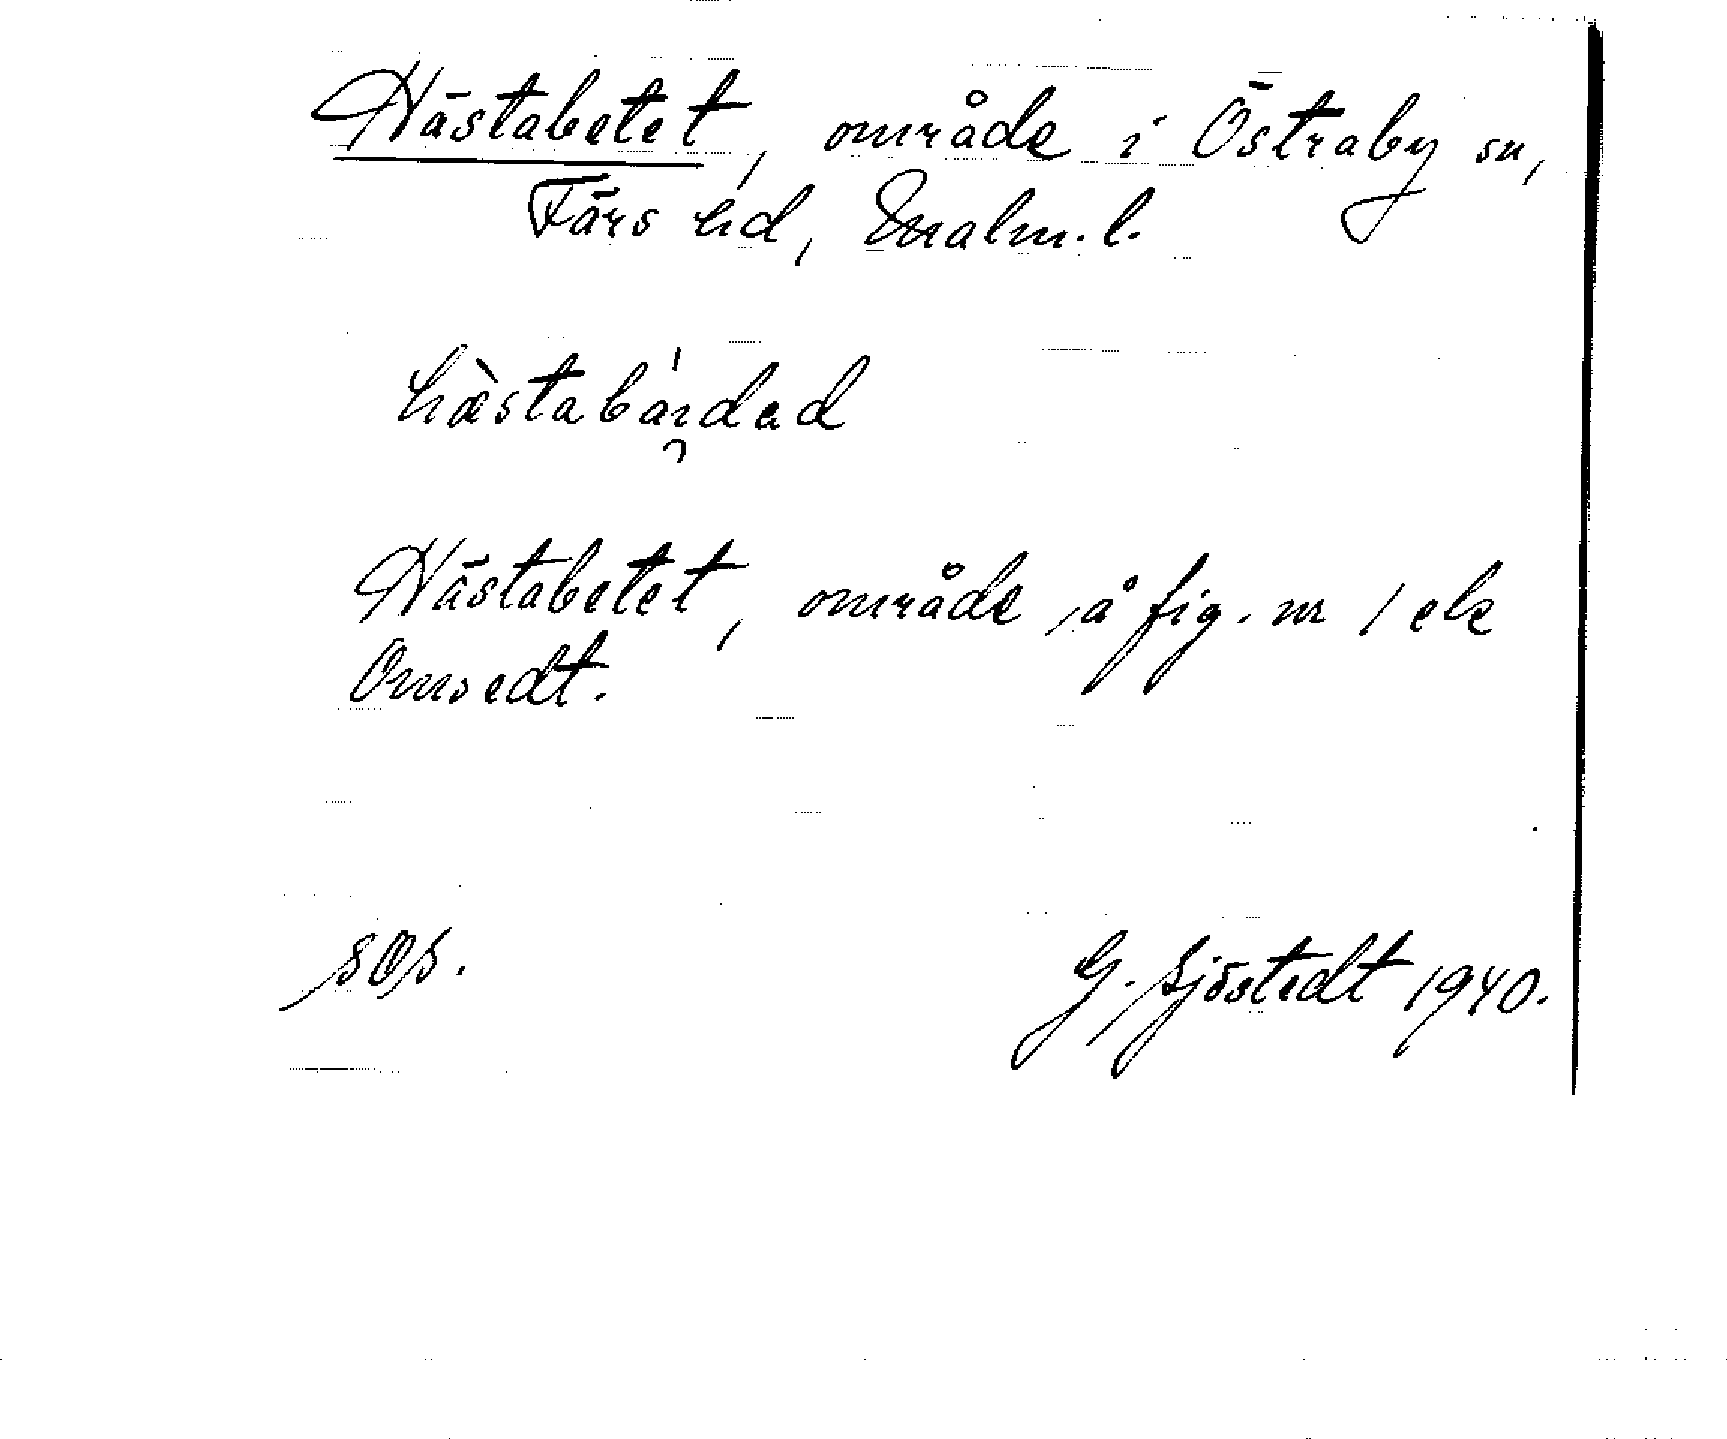 Hästabetet, område i Östraby sn,
Färs hd, Malm. l.
Hästabetet, område å fig. nr 1 ek
Omsedt.
sOs.
G. Sjöstedt 1940.